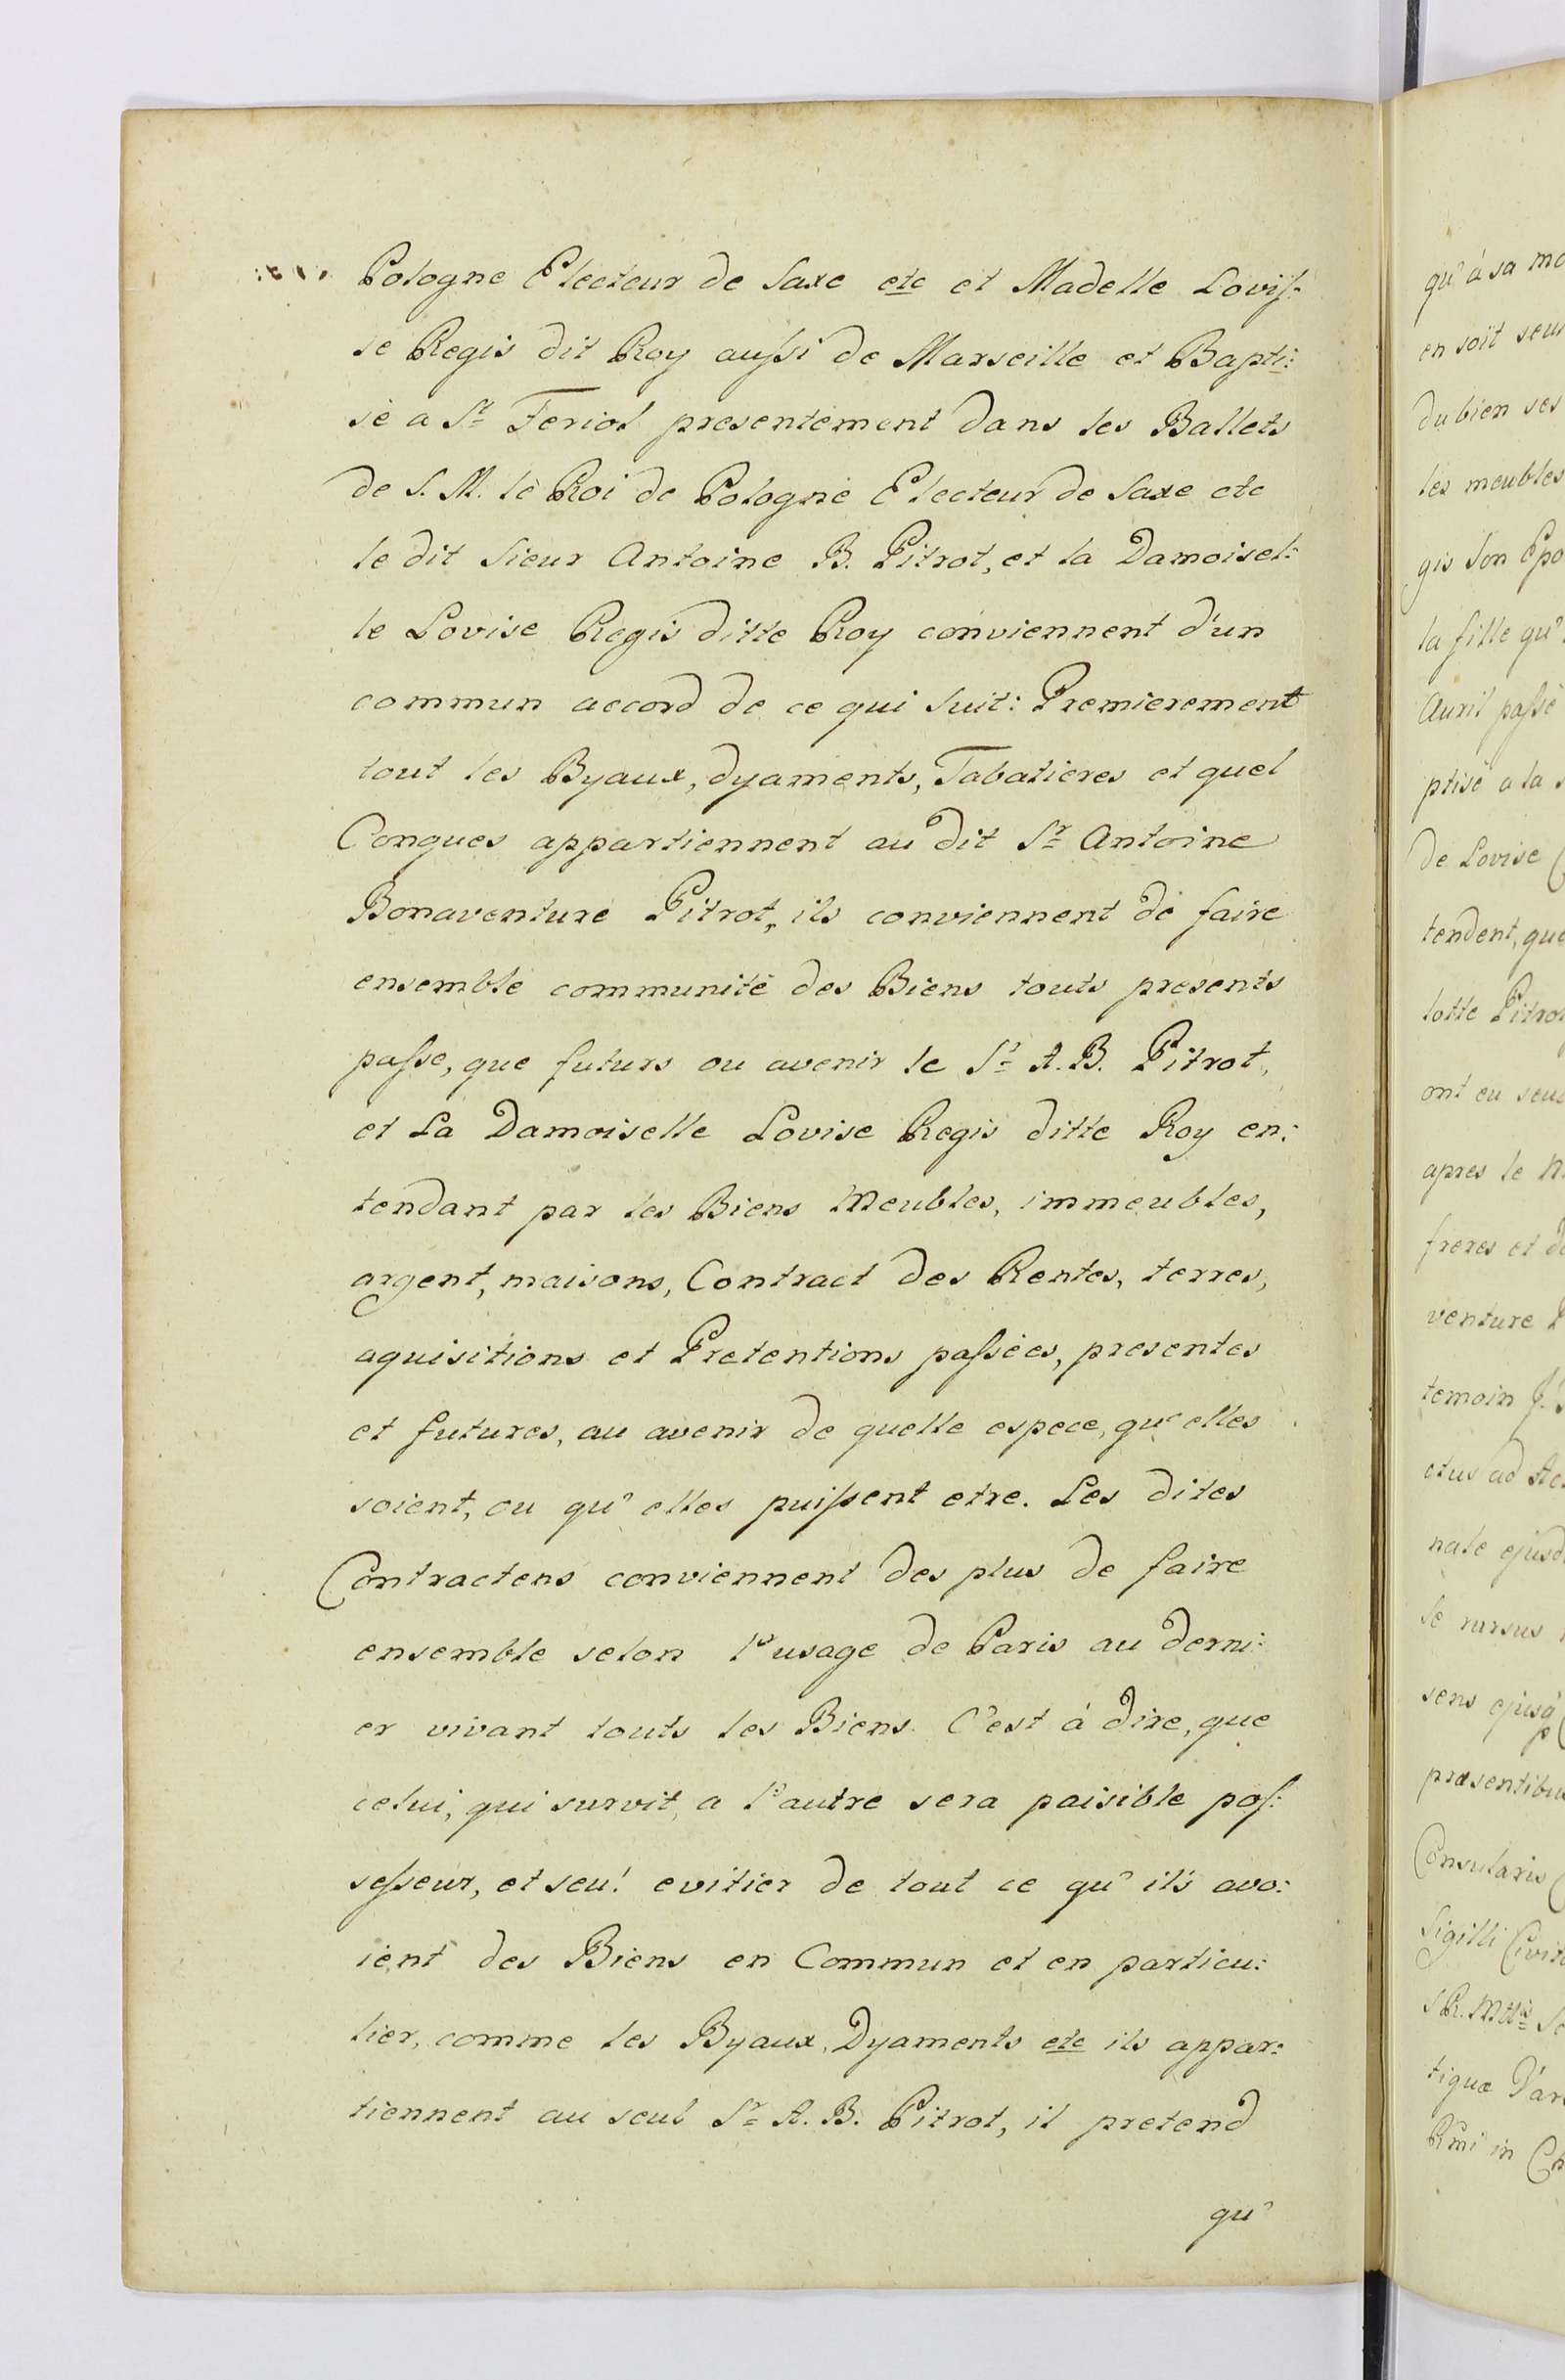 Pologne Electeur de Saxe etc et Madelle Lovis-
se Regis dit Roy aussi de Marseille et Bapti:
sè a Sr Feriol presentement dans les Ballets
de S. M. lè Roi de Pologne Electeur de Saxe etc
le dit Sieur Antoine B. Pitrot, et la Damoisel:
le Lovise Regis ditte Roy conviennent d'un
commun accord de ce qui suit: Premierement
tout les Byaux, dyaments, Tabatieres et quel
Conques appartiennent au dit Sr Antoine
Bonaventure Pitrot, ils conviennent de faire
ensemble communitè des Biens touts presents
passe, que futurs ou avenir le Sr A. B. Pitrot,
et La Damoiselle Lovise Regis ditte Roy en:
tendant par les Biens Meubles, immeubles,
argent, maisons, Contract des Rentes, terres,
aquisitions et Pretentions passèes, presentes
et futures, au avenir de quelle espece, qu'elles
soient, ou qu'elles puissent etre. Les dites
Contractens conviennent des plus de faire
ensemble selon l'usage de Paris au derni:
er vivant touts les Biens. C'est à dire, que
celui, qui survit, a l'autre sera paisible pos:
sesseur, et seul evitier de tout ce qu'ils avo:
ient des Biens en Commun et en particu:
lier, comme les Byaux, Dyaments etc ils appar:
tiennent au seul Sr A. B. Pitrot, il pretend
qu'
qu'à sa mo
en soit seu
du bien ses
les meubles
gis son Epo
la fille qu'
Avril passè
ptisè a la
de Lovise
tendent, que
lotte Pitrot
ont eu seu
apres le M
freres et de
venture P
temoin J.
ctus ad Ac
nale ejusd
se rursus
sens ejusd
præsentibu
Consularis
Sigilli Civit
S.R. Mttis Se
tiquæ
Rmi in Ch